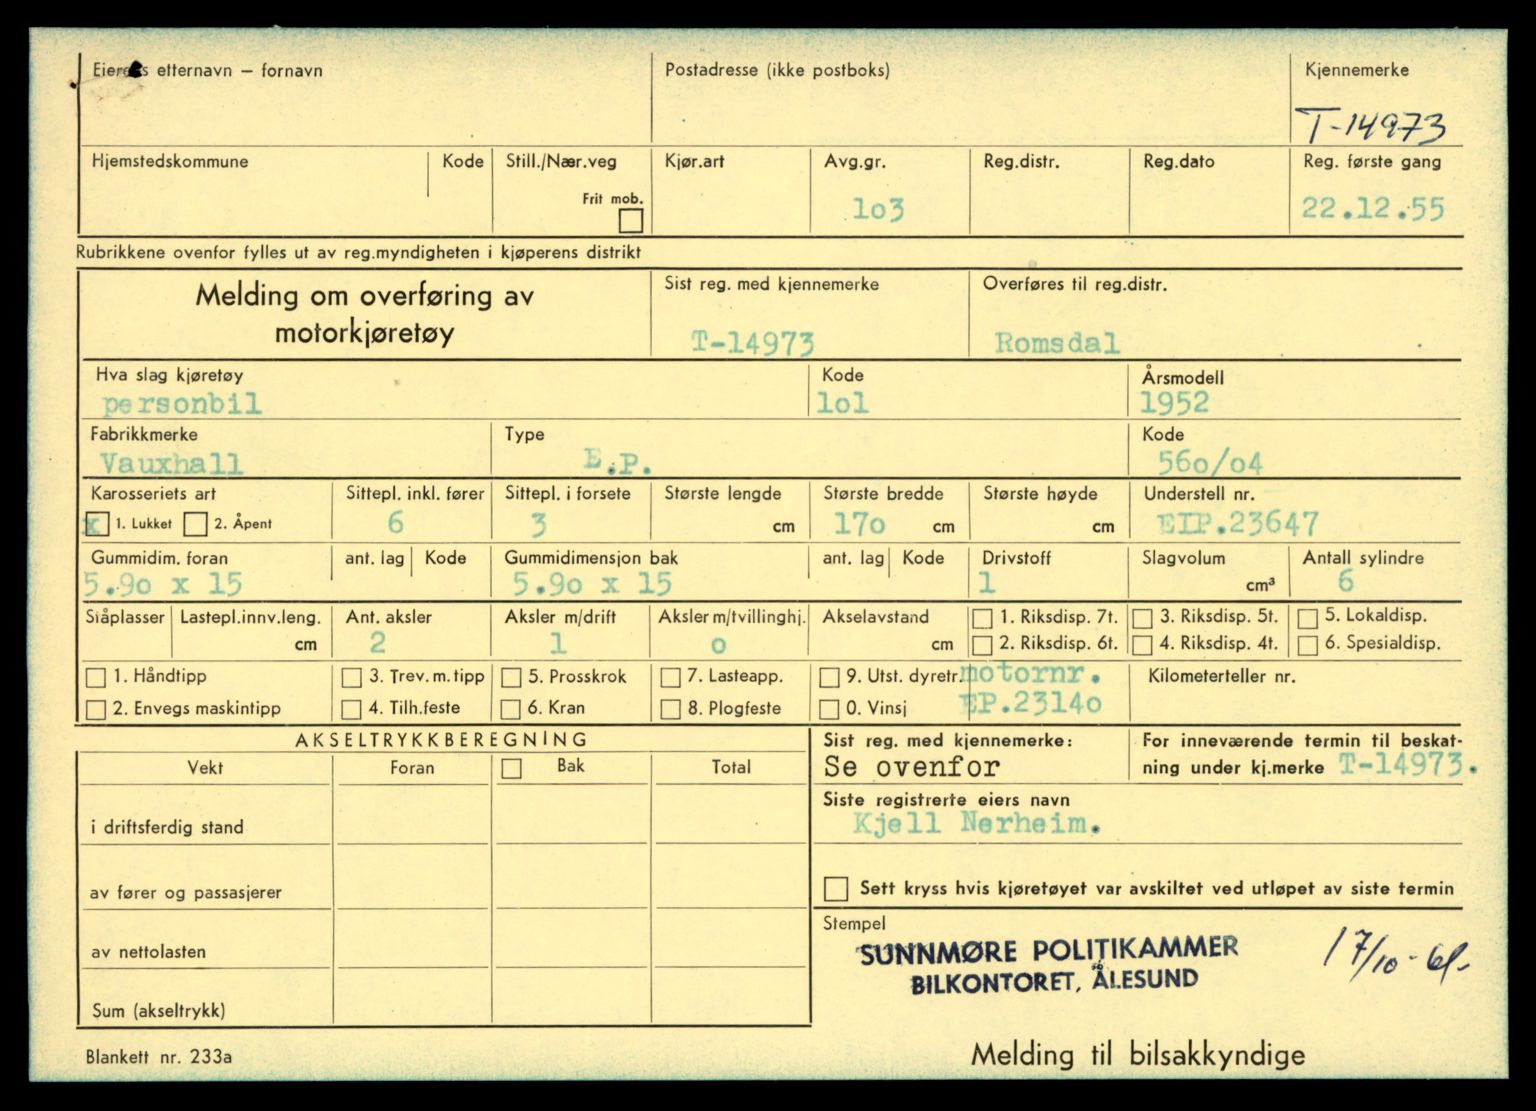 Eierens etternavn – fornavn
Postadresse (ikke postboks)
Kjennemerke
T-14973
Hjemstedskommune
Kode
Still./Nær.veg
Frit mob.
Kjør.art
Avg.gr.
lo3
Reg.distr.
Reg.dato
Reg. første gang
22.12.55
Rubrikkene ovenfor fylles ut av reg.myndigheten i kjøperens distrikt
Melding om overføring av
motorkjøretøy
Sist reg. med kjennemerke
T-14973
Overføres til reg.distr.
Romsdal
Hva slag kjøretøy
personbil
Kode
lol
Årsmodell
1952
Fabrikkmerke
Vauxhall
Type
E.P.
Kode
56o/o4
Karosseriets art
x 1. Lukket 2. Åpent
Sittepl. inkl. fører
6
Sittepl. i forsete
3
Største lengde
cm
Største bredde
17o cm
Største høyde
cm
Understell nr.
EIP.23647
Gummidim. foran
5.9o x 15
ant. lag
Kode
Gummidimensjon bak
5.9o x 15
ant. lag
Kode
Drivstoff
1
Slagvolum
cm³
Antall sylindre
6
Ståplasser
Lastepl.innv.leng.
cm
Ant. aksler
2
Aksler m/drift
1
Aksler m/tvillinghj.
o
Akselavstand
cm
1. Riksdisp. 7t.
2. Riksdisp. 6t.
3. Riksdisp. 5t.
4. Riksdisp. 4t.
5. Lokaldisp.
6. Spesialdisp.
1. Håndtipp
2. Envegs maskintipp
3. Trev. m. tipp
4. Tilh.feste
5. Prosskrok
6. Kran
7. Lasteapp.
8. Plogfeste
9. Utst. dyretr.
0. Vinsj
motornr.
EP.2314o
Kilometerteller nr.
AKSELTRYKKBEREGNING
Vekt
Foran
Bak
Total
i driftsferdig stand
av fører og passasjerer
av nettolasten
Sum (akseltrykk)
Sist reg. med kjennemerke:
Se ovenfor
For inneværende termin til beskat-
ning under kj.merke T-14973.
Siste registrerte eiers navn
Kjell Nerheim.
Sett kryss hvis kjøretøyet var avskiltet ved utløpet av siste termin
Stempel
SUNNMØRE POLITIKAMMER
BILKONTORET, ÅLESUND
17/10-61-
Blankett nr. 233a
Melding til bilsakkyndige